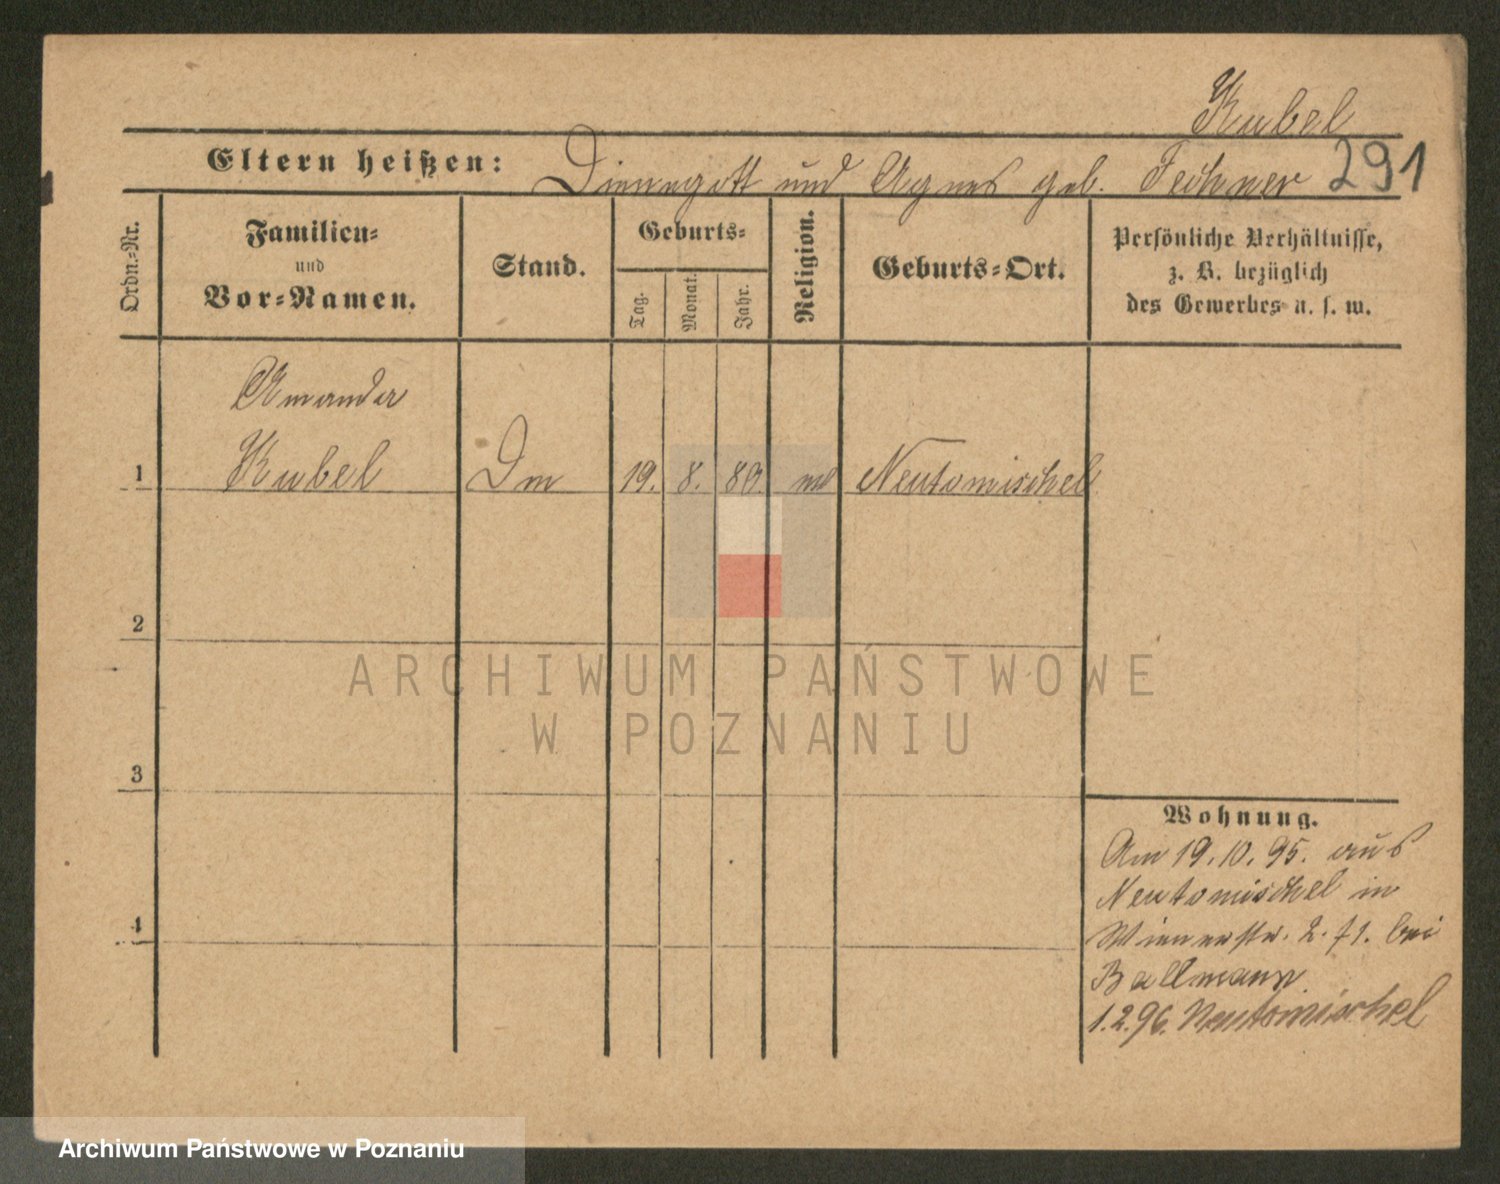 Kubel
Eltern heißen: Dienegott und Agnes geb. Fechner 291
Ordn.-Nr.
Familien-
und
Vor-Namen.
Stand.
Geburts-
Tag.
Monat.
Jahr.
Religion.
Geburts-Ort.
Persönliche Verhältnisse,
z. B. bezüglich
des Gewerbes u. s. w.
Amanda
1 Kubel Dm 19. 8. 80. Neutomischel
2
ARCHIWUM PAŃSTWOWE
W POZNANIU
3
Wohnung.
Am 19.10.95. aus
Neutomischel in
Wienerstr. 2. bei
4
Ballmann
1.2.96. Neutomischel
Archiwum Państwowe w Poznaniu